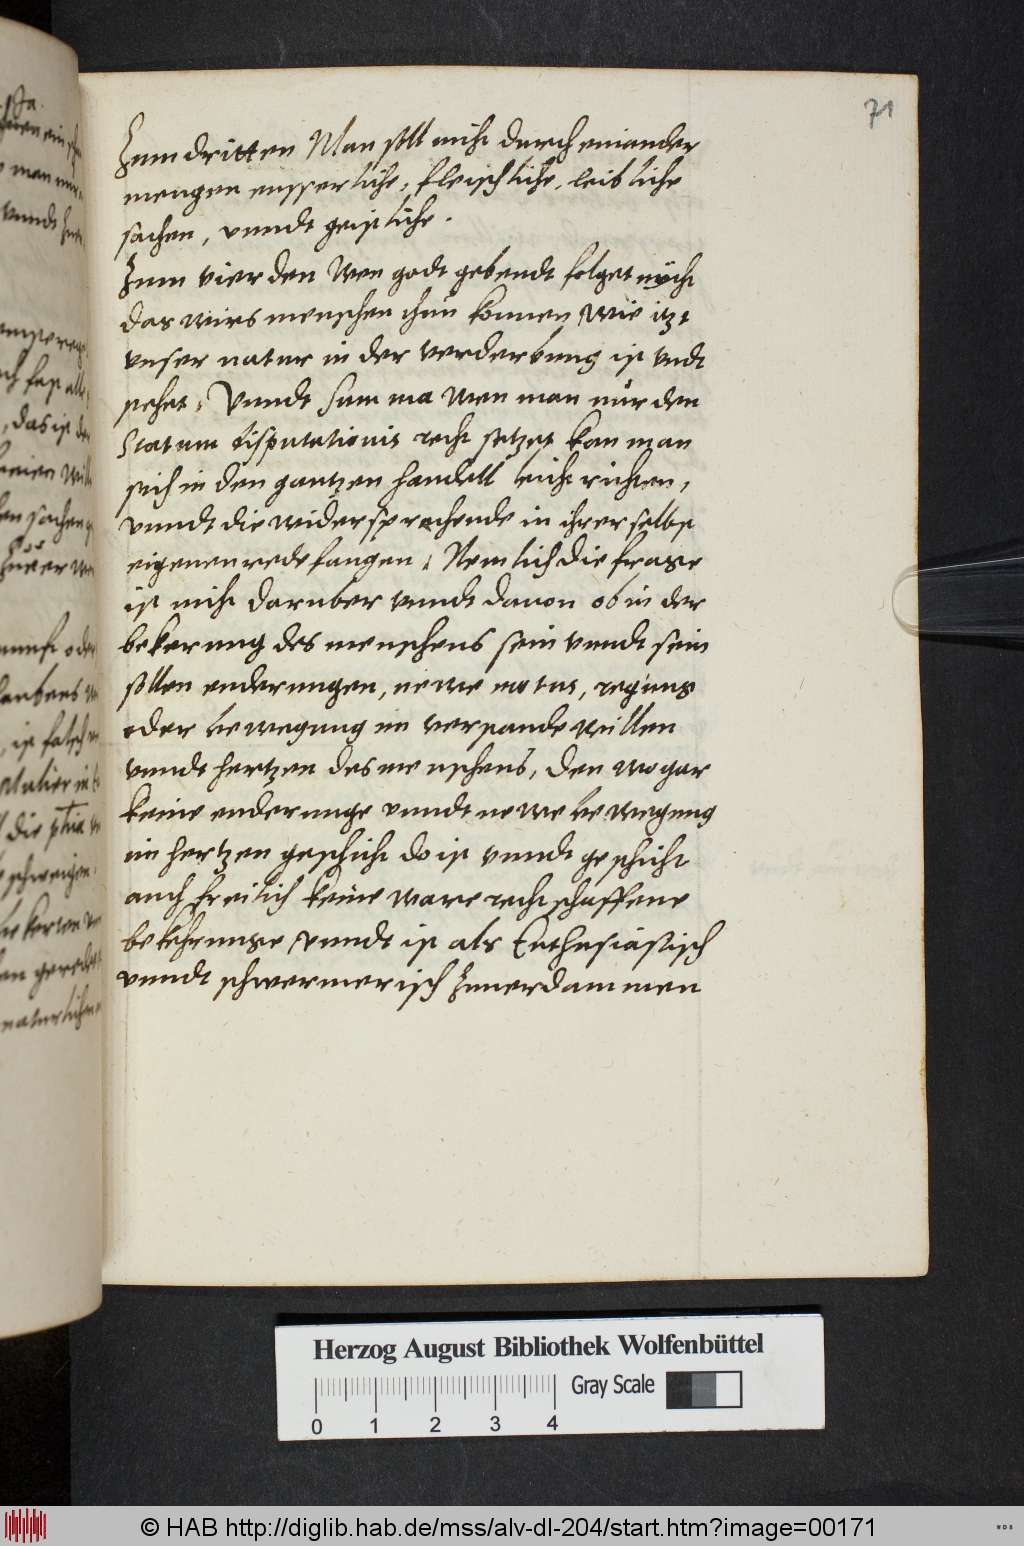 71
Zum dritten Man soll nicht durch einander
mengen eusserliche, fleischliche, leibliche
sachen, vnndt geistliche.
Zum vierden Wen godt gebeudt folget nicht
das wirs menschen thun konnen, wie itzt
vnser natur in der verderbung ist vndt
stehet, Vnndt summa wen man nur den
Statum disputationis recht setzet kan man
sich in den gantzen handell leicht richten,
vnndt die widersprechende in ihrer selbst
eigenen rede fangen, Nemlich die frage
ist nicht daruber vnndt dauon ob in der
bekerung des menschens sein vnndt sein
sollen enderungen, newe motus, regung
oder bewegung im verstande willen
vnndt hertzen des menschens, den wo gar
keine enderunge vnndt newe bewegung
im hertzen geschicht do ist vnndt geschicht
auch freilich keine ware rechtschaffene
bekehrunge vnndt ist als Enthusiastisch
vnndt schwermerisch zuuerdammen
Herzog August Bibliothek Wolfenbüttel
Gray Scale
0 1 2 3 4
© HAB http://diglib.hab.de/mss/alv-dl-204/start.htm?image=00171